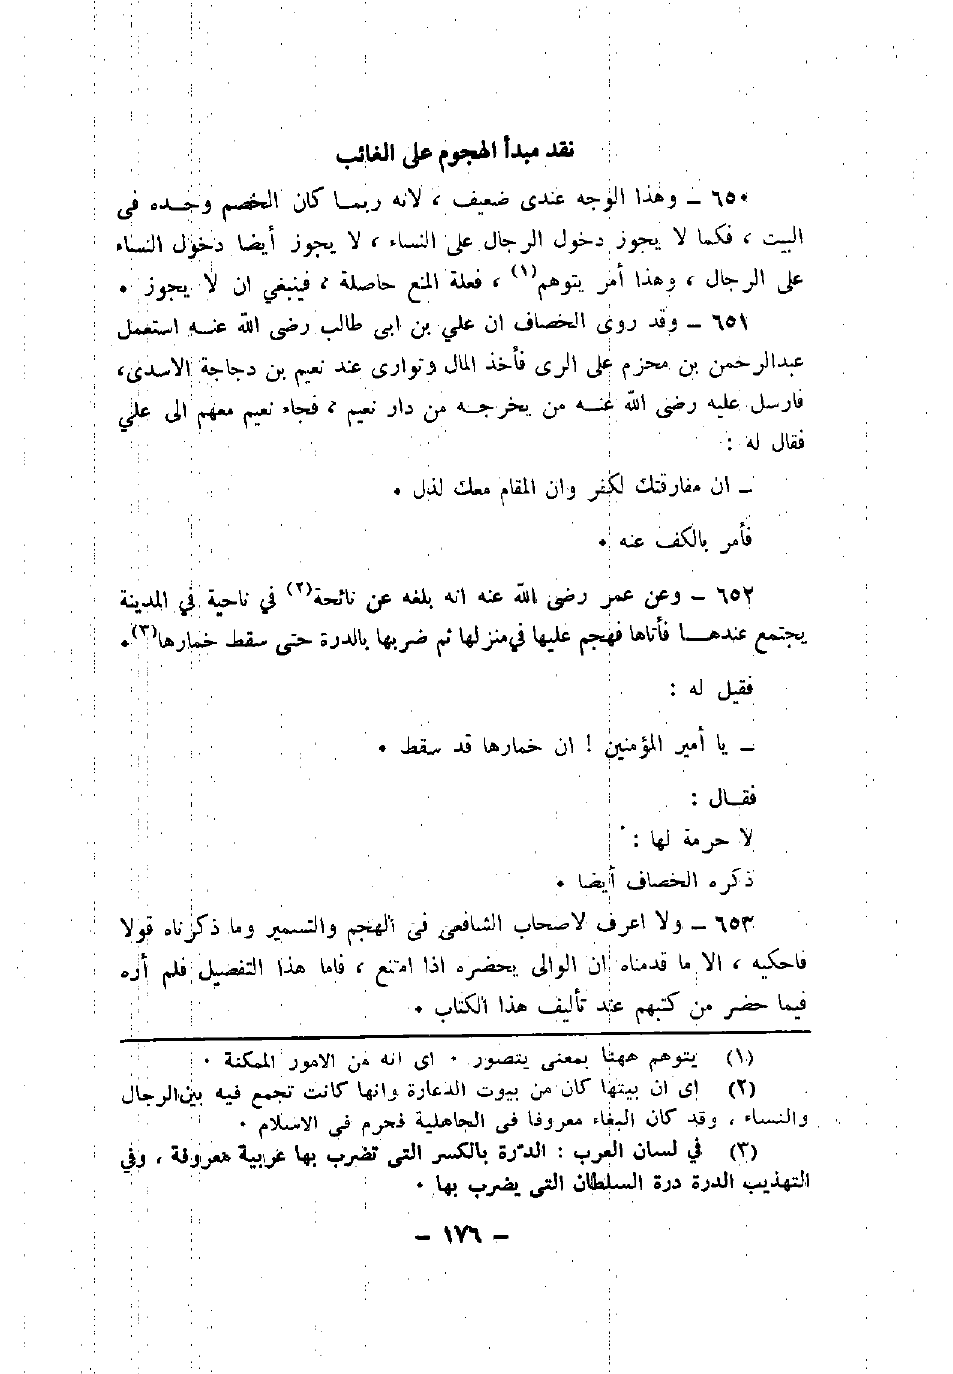 نقد مبدأ الهجوم على الغائب
٦٥٠ ــ وهذا الوجه عندى ضعيف ، لانه ربمـا كان الخصم وحـده فى
البيت ، فكما لا يجوز دخول الرجال على النساء ، لا يجوز أيضا دخول النساء
على الرجال ، وهذا أمر يتوهم(١) ، فعلة المنع حاصلة ، فينبغي ان لا يجوز ٠
٦٥١ ــ وقد روى الخصاف ان علي بن ابى طالب رضى الله عنـه استعمل
عبدالرحمن بن محزم على الرى فأخذ المال وتوارى عند نعيم بن دجاجة الاسدى،
فارسل عليه رضى الله عنـه من يخرجـه من دار نعيم ، فجاء نعيم معهم الى علي
فقال له :
ــ ان مفارقتك لكفر وان المقام معك لذل ٠
فأمر بالكف عنه ٠
٦٥٢ ــ وعن عمر رضى الله عنه انه بلغه عن نائحة(٢) في ناحية في المدينة
يجتمع عندهـا فأتاها فهجم عليها في منزلها ثم ضربها بالدرة حتى سقط خمارها(٣)٠
فقيل له :
ــ يا أمير المؤمنين ! ان خمارها قد سقط ٠
فقـال :
لا حرمة لها :
ذكره الخصاف أيضا ٠
٦٥٣ ــ ولا اعرف لاصحاب الشافعى فى الهجم والتسمير وما ذكرناه قولا
فاحكيه ، الا ما قدمناه ان الوالى يحضره اذا امتنع ، فاما هذا التفصيل فلم أره
فيما حضر من كتبهم عند تأليف هذا الكتاب ٠
(١) يتوهم ههنا بمعنى يتصور ٠ اى انه من الامور الممكنة ٠
(٢) اى ان بيتها كان من بيوت الدعارة وانها كانت تجمع فيه بين الرجال
والنساء ، وقد كان البغاء معروفا فى الجاهلية فحرم فى الاسلام ٠
(٣) في لسان العرب : الدرّة بالكسر التى تضرب بها عربية معروفة ، وفي
التهذيب الدرة درة السلطان التى يضرب بها ٠
ــ ١٧٦ ــ